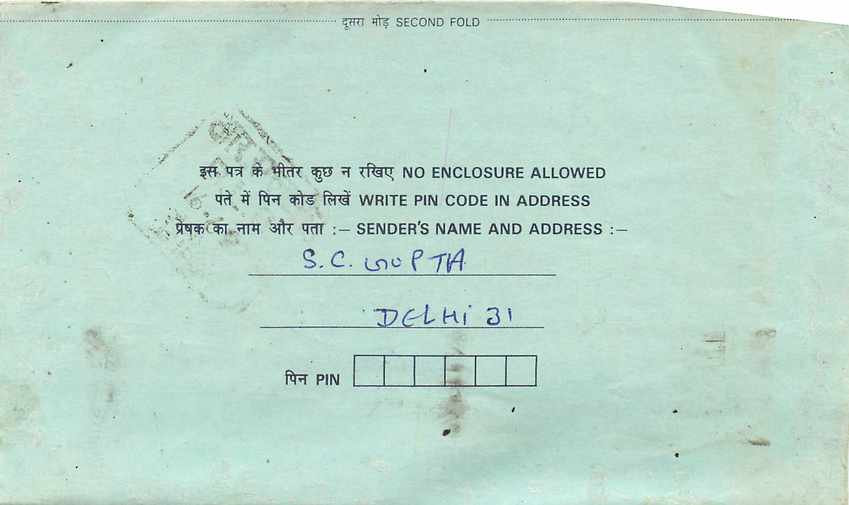 दूसरा मोड़ SECOND FOLD
इस पत्र के भीतर कुछ न रखिए NO ENCLOSURE ALLOWED
पते में पिन कोड लिखें WRITE PIN CODE IN ADDRESS
प्रेषक का नाम और पता :– SENDER'S NAME AND ADDRESS :–
S.C. GUPTA
DELHI 31
पिन PIN